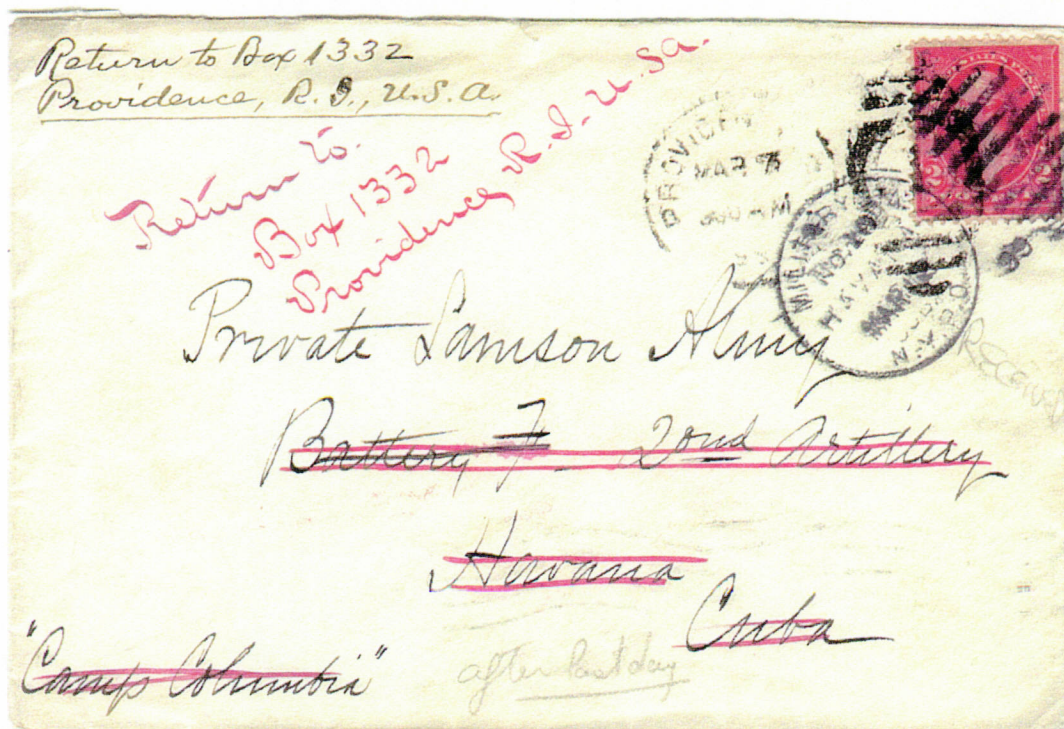 Return to Box 1332
Providence, R. I., U.S.A.
Return to.
Box 1332
Providence R. I. U. S a.
PROVIDEN
MAR
AM
MILITARY
NO.
HAVANA
MAR
N.Y.
2
RECEIVED
Private Samson Almy
Battery F - 2nd Artillery
Havana
Cuba
"Camp Columbia"
after last day